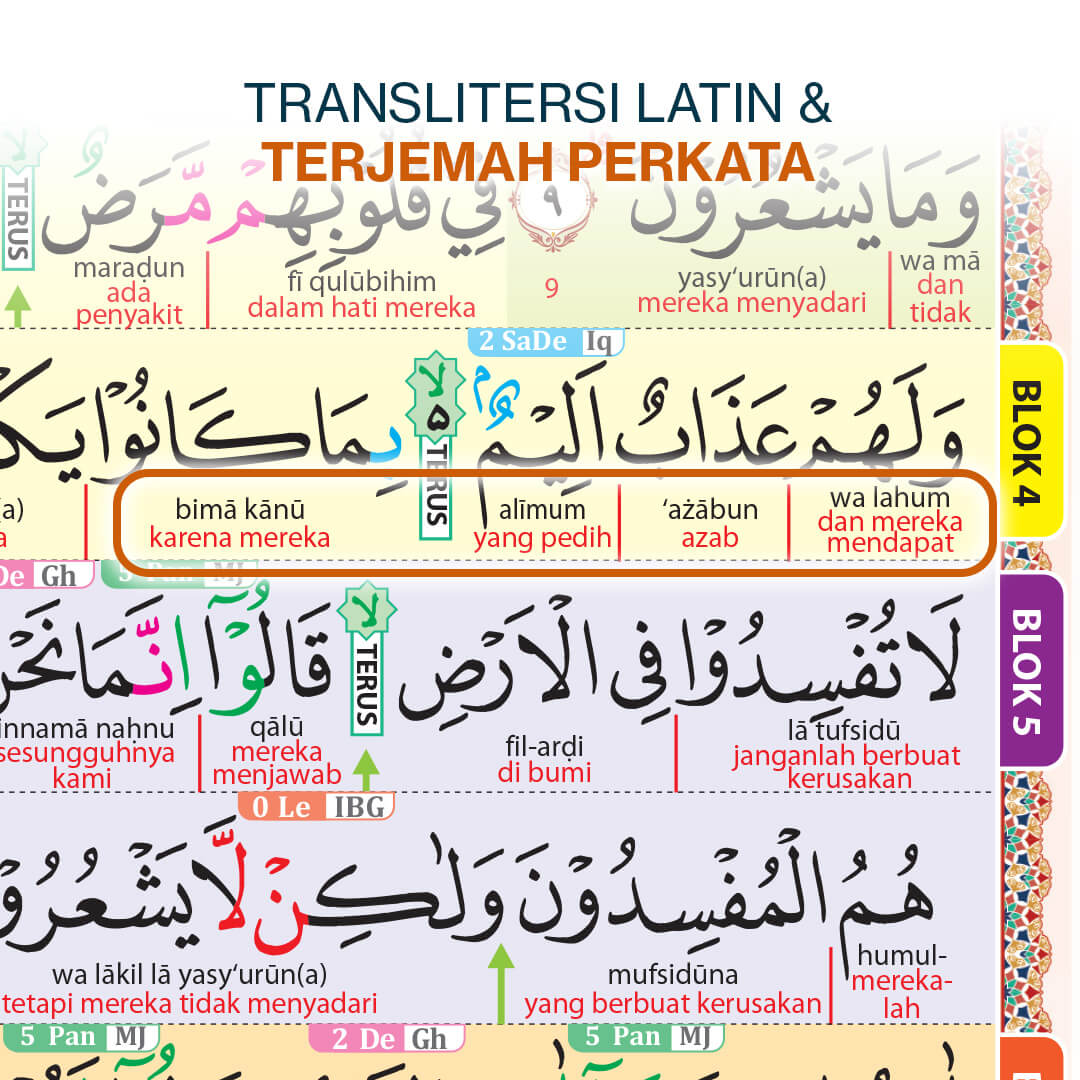 TRANSLITERSI LATIN &
TERJEMAH PERKATA
وَمَا يَشْعُرُوْنَ ۹ فِيْ قُلُوْبِهِمْ مَّرَضٌ
TERUS
wa mā yasy‘urūn(a) 9 fī qulūbihim maraḍun
dan tidak mereka menyadari dalam hati mereka ada penyakit
2 SaDe Iq
وَلَهُمْ عَذَابٌ اَلِيْمٌ ۢ ە بِمَا كَانُوْا يَكْ
لا ۵ TERUS
BLOK 4
wa lahum ‘ażābun alīmum bimā kānū (a)
dan mereka mendapat azab yang pedih karena mereka a
5 Pan MJ De Gh
لَا تُفْسِدُوْا فِى الْاَرْضِ قَالُوْٓا اِنَّمَا نَحْنُ
لا TERUS
BLOK 5
lā tufsidū fil-arḍi qālū innamā naḥnu
janganlah berbuat kerusakan di bumi mereka menjawab sesungguhnya kami
0 Le IBG
هُمُ الْمُفْسِدُوْنَ وَلٰكِنْ لَّا يَشْعُرُوْ
humul- mufsidūna wa lākil lā yasy‘urūn(a)
mereka-lah yang berbuat kerusakan tetapi mereka tidak menyadari
5 Pan MJ 2 De Gh 5 Pan MJ